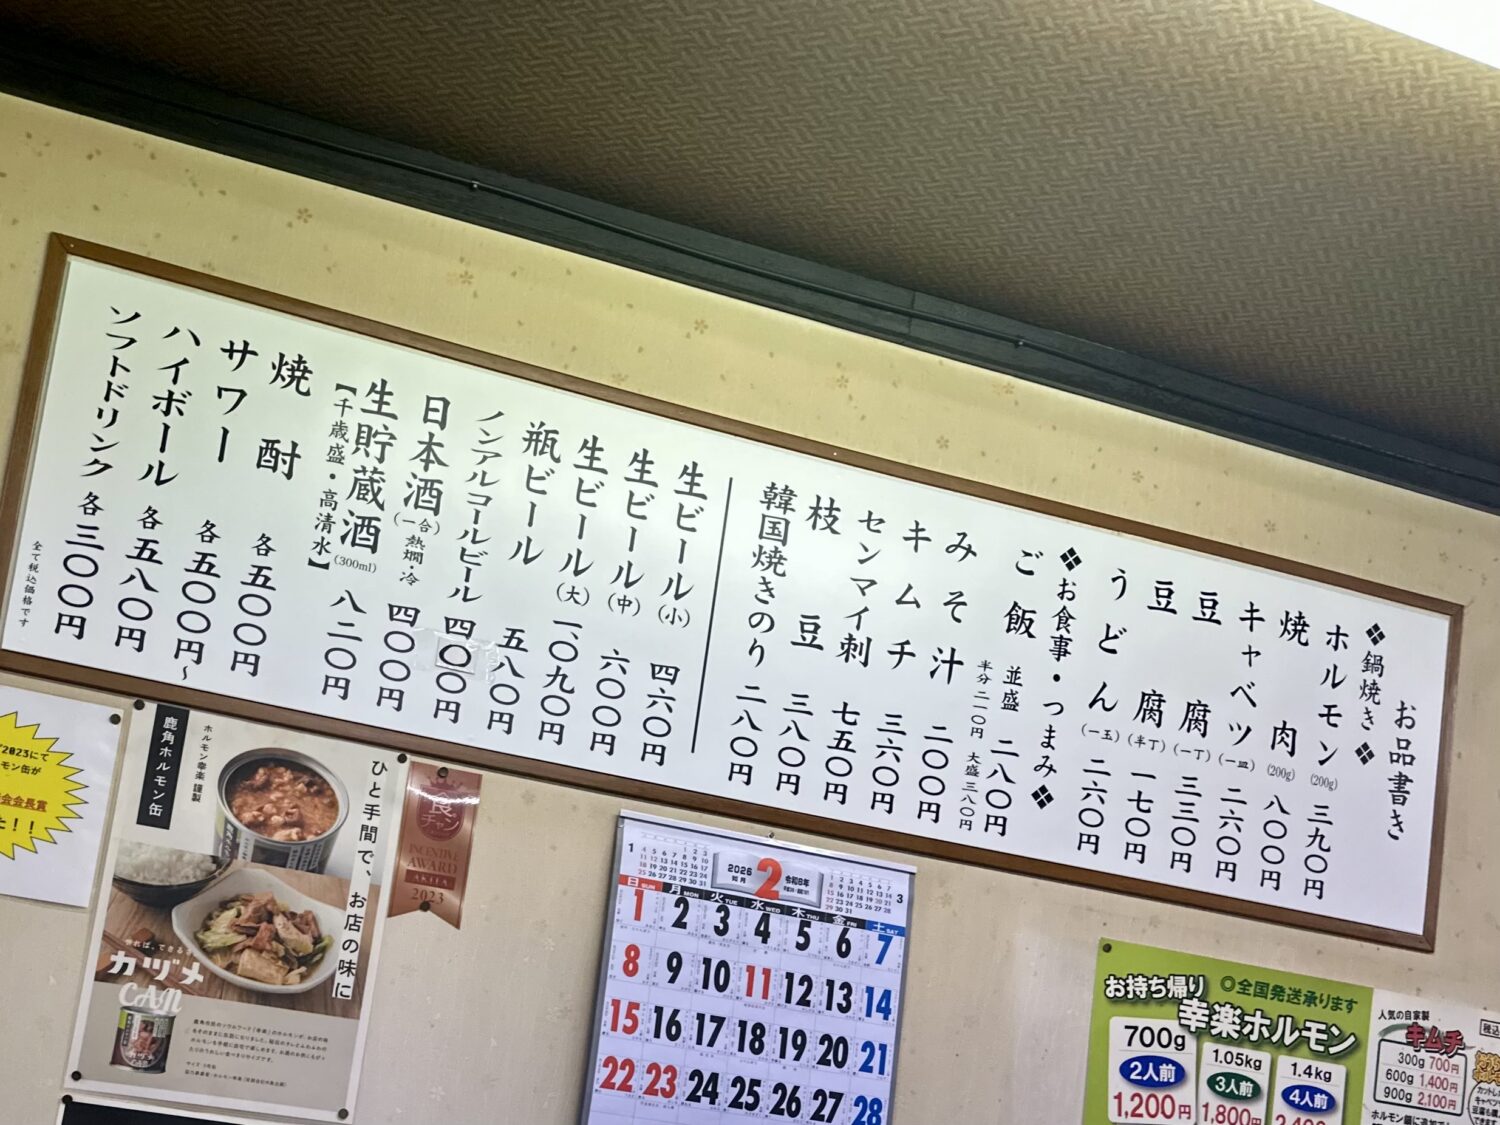 お品書き
❖鍋焼き❖
ホルモン(200g) 三九〇円
焼肉(200g) 八〇〇円
キャベツ(一皿) 二六〇円
豆腐(一丁) 三三〇円
豆腐(半丁) 一七〇円
うどん(一玉) 二六〇円
❖お食事・つまみ❖
ご飯 並盛 二八〇円
半分 二一〇円 大盛 三八〇円
みそ汁 二〇〇円
キムチ 三六〇円
センマイ刺 七五〇円
枝豆 三八〇円
韓国焼きのり 二八〇円
生ビール(小) 四六〇円
生ビール(中) 六〇〇円
生ビール(大) 一、〇九〇円
瓶ビール 五八〇円
ノンアルコールビール 四〇〇円
日本酒(一合)熱燗・冷 四〇〇円
生貯蔵酒(300ml) 八二〇円
【千歳盛・高清水】
焼酎 各五〇〇円
サワー 各五〇〇円〜
ハイボール 各五八〇円
ソフトドリンク 各三〇〇円
全て税込価格です
2023にて
モン缶が
会会長賞
た!!
鹿角ホルモン缶
ホルモン幸楽 謹製
ひと手間で、お店の味に
作れば、できる
カヅメ
CAN
食チャン
INCENTIVE
AWARD
AKITA
2023
1
2026
如月
2
令和8年
3
日 SUN 月 MON 火 TUE 水 WED 木 THU 金 FRI 土 SAT
1 2 3 4 5 6 7
8 9 10 11 12 13 14
15 16 17 18 19 20 21
22 23 24 25 26 27 28
お持ち帰り ◎全国発送承ります
幸楽ホルモン
700g
2人前
1,200円
1.05kg
3人前
1,800円
1.4kg
4人前
人気の自家製
キムチ
300g 700円
600g 1,400円
900g 2,100円